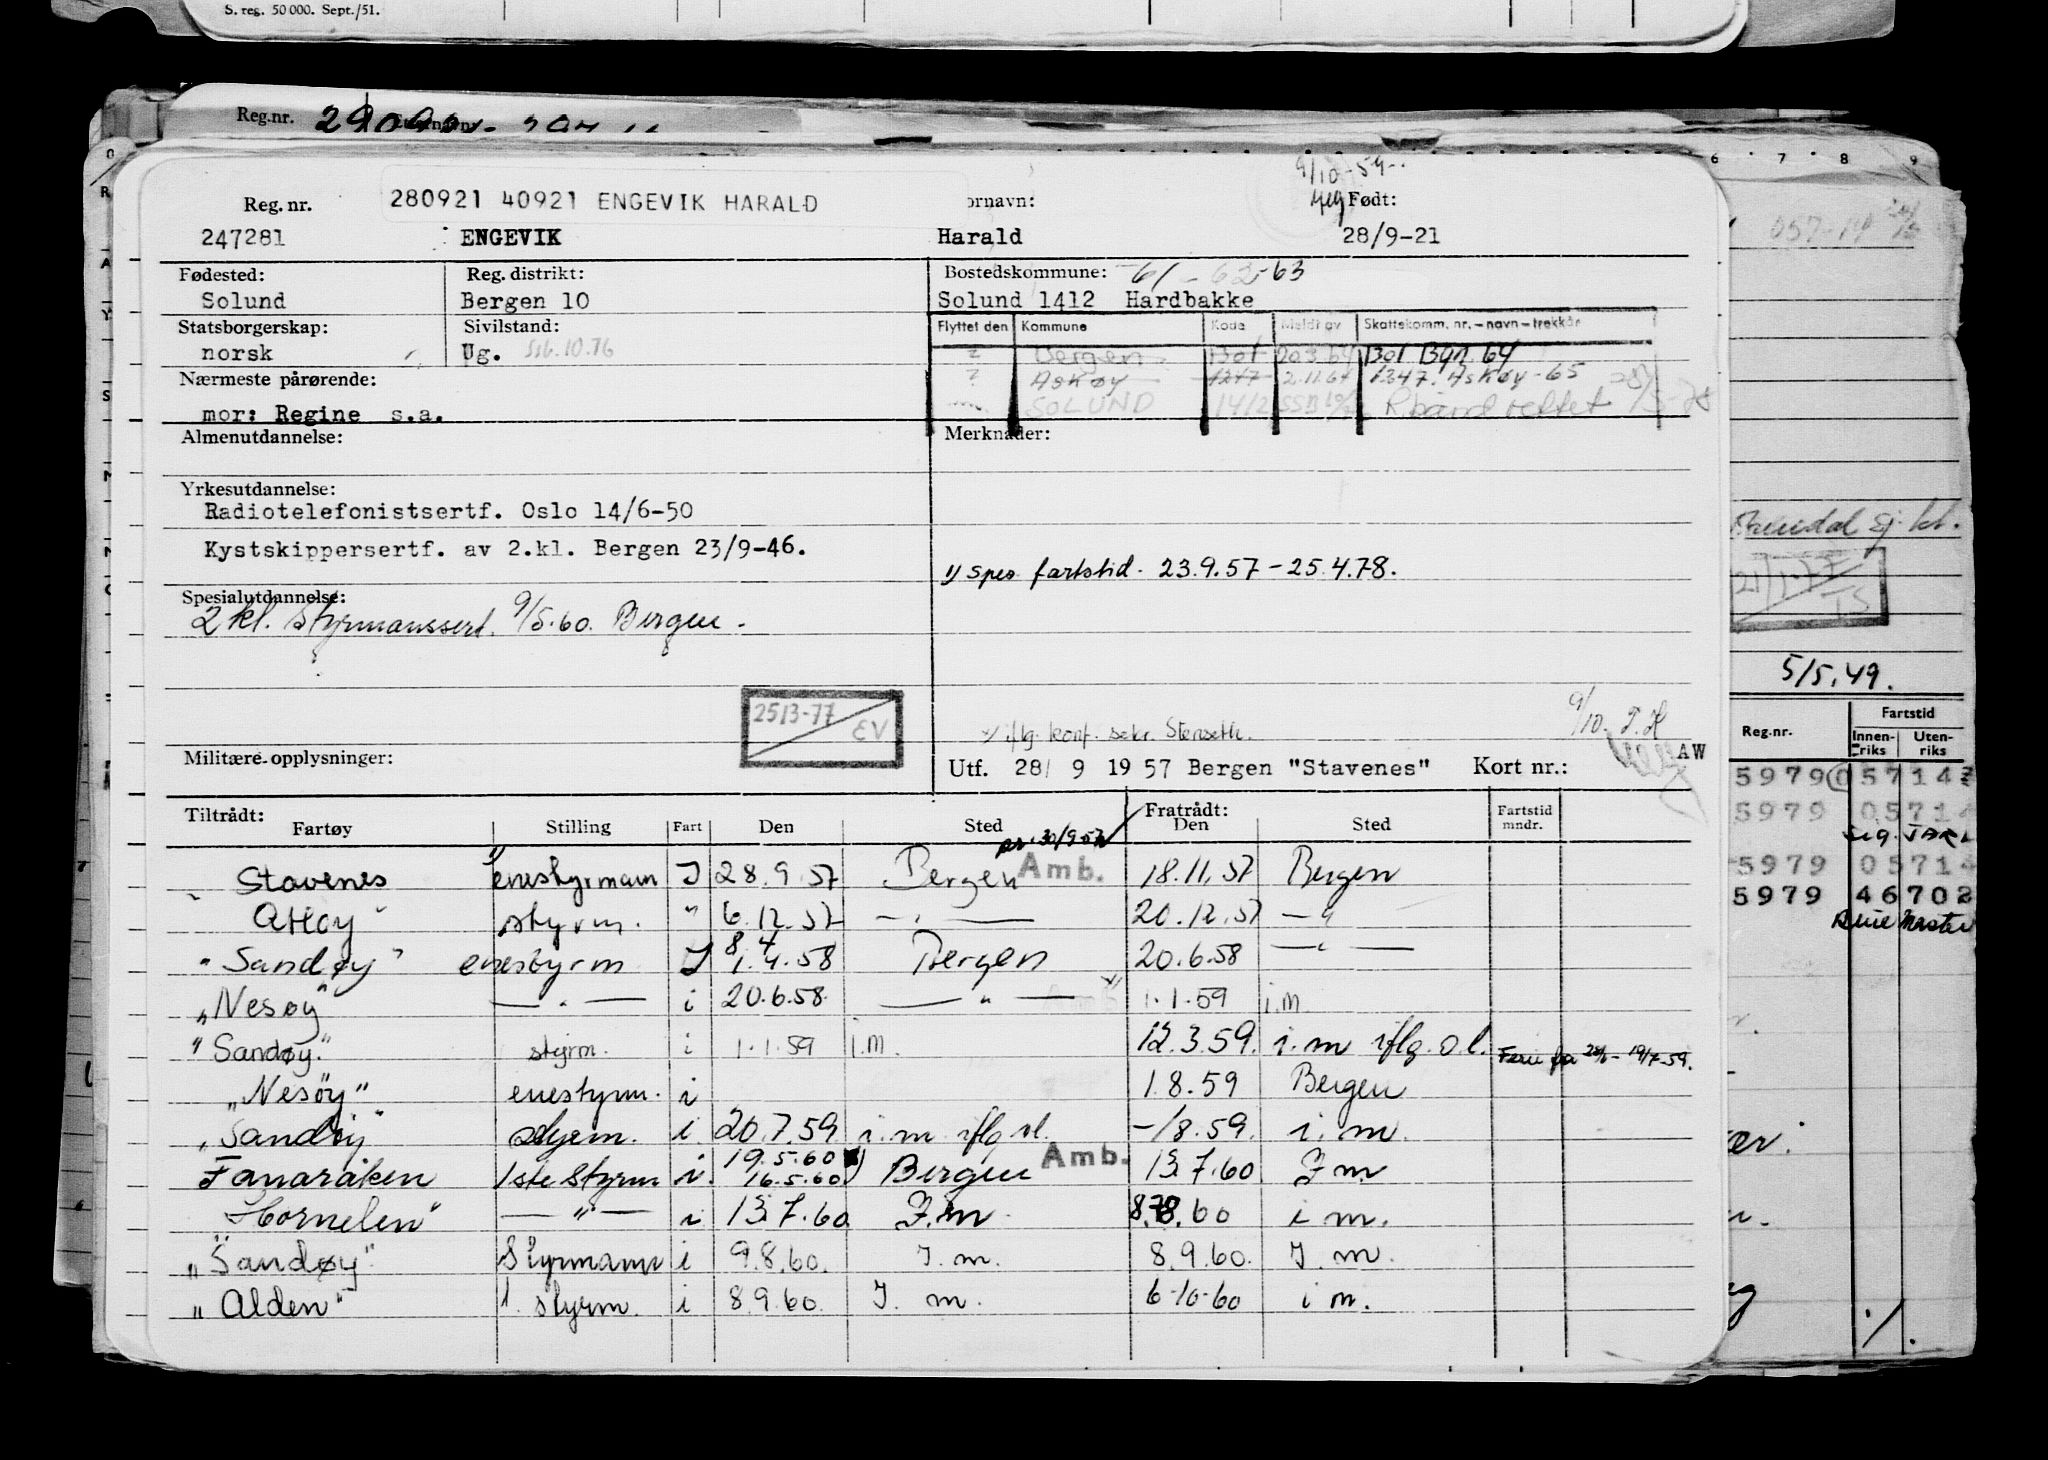 S. reg. 50 000. Sept./51.
Reg.nr.
9/10-59
Reg. nr. 280921 40921 ENGEVIK HARALD ornavn: Født:
247281 ENGEVIK Harald 28/9-21
Fødested: Reg. distrikt: Bostedskommune: -61-62-63
Solund Bergen 10 Solund 1412 Hardbakke
Statsborgerskap: Sivilstand: Flyttet den Kommune Kode Meldt av Skattekomm. nr. – navn – trekkår
norsk Ug. Bergen 1301 20364 1301 Bgn 64
Nærmeste pårørende: ? Askøy 1247 2.11.64 1347. Askøy-65
mor: Regine s.a. SOLUND 1412
Almenutdannelse: Merknader:
Yrkesutdannelse:
Radiotelefonistsertf. Oslo 14/6-50
Kystskippersertf. av 2.kl. Bergen 23/9-46.
1) spes. fartstid. 23.9.57-25.4.78.
Spesialutdannelse:
2 kl. Styrmannssert. 9/5.60. Bergen.
25/3-77 EV
x) iflg. konf. sekr. Stenseth.
9/10. T.H
Militære opplysninger: Utf. 28/ 9 19 57 Bergen "Stavenes" Kort nr.: AW
Tiltrådt: Fratrådt:
Fartøy Stilling Fart Den Sted Den Sted Fartstid mndr.
Stavenes enestyrmann I 28.9.57 Bergen Amb. 18.11.57 Bergen
Atløy styrm. " 6.12.57 — " — 20.12.57 — "
8 4
"Sandøy" enestyrm I 1.4.58 Bergen 20.6.58 — " —
"Nesøy" — " — i 20.6.58. — " — 1.1.59 i.m
"Sandøy." styrm. i 1.1.59 i.m. 12.3.59. i.m iflg. o l. Ferie fra 28/6- 19/7-59.
"Nesöy" enestyrm. i 1.8.59 Bergen
"Sandöy" styrm. i 20.7.59 i.m iflg ol. -/8.59. i.m.
19.5.60
Fanaråken 1ste Styrm i. 16.5.60 Bergen Amb. 13.7.60 I m
"Hornelen" — " — i 13.7.60 I.m. 8.8.60 i m.
"Sandøy" Styrmann i 9.8.60. I.m. 8.9.60. I m.
"Alden" 1. styrm. i 8.9.60. I. m. 6-10-60 i m.
6 7 8 9
5/5.49.
Reg.nr. Fartstid
Innenriks Utenriks
5979 05714
5979 05714
5979 05714
5979 46702
Blue Master